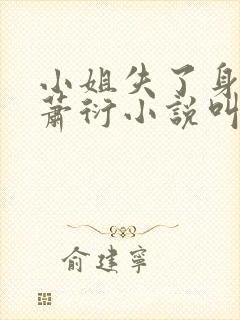 小姐失了身
萧衍小説叫
俞建寧